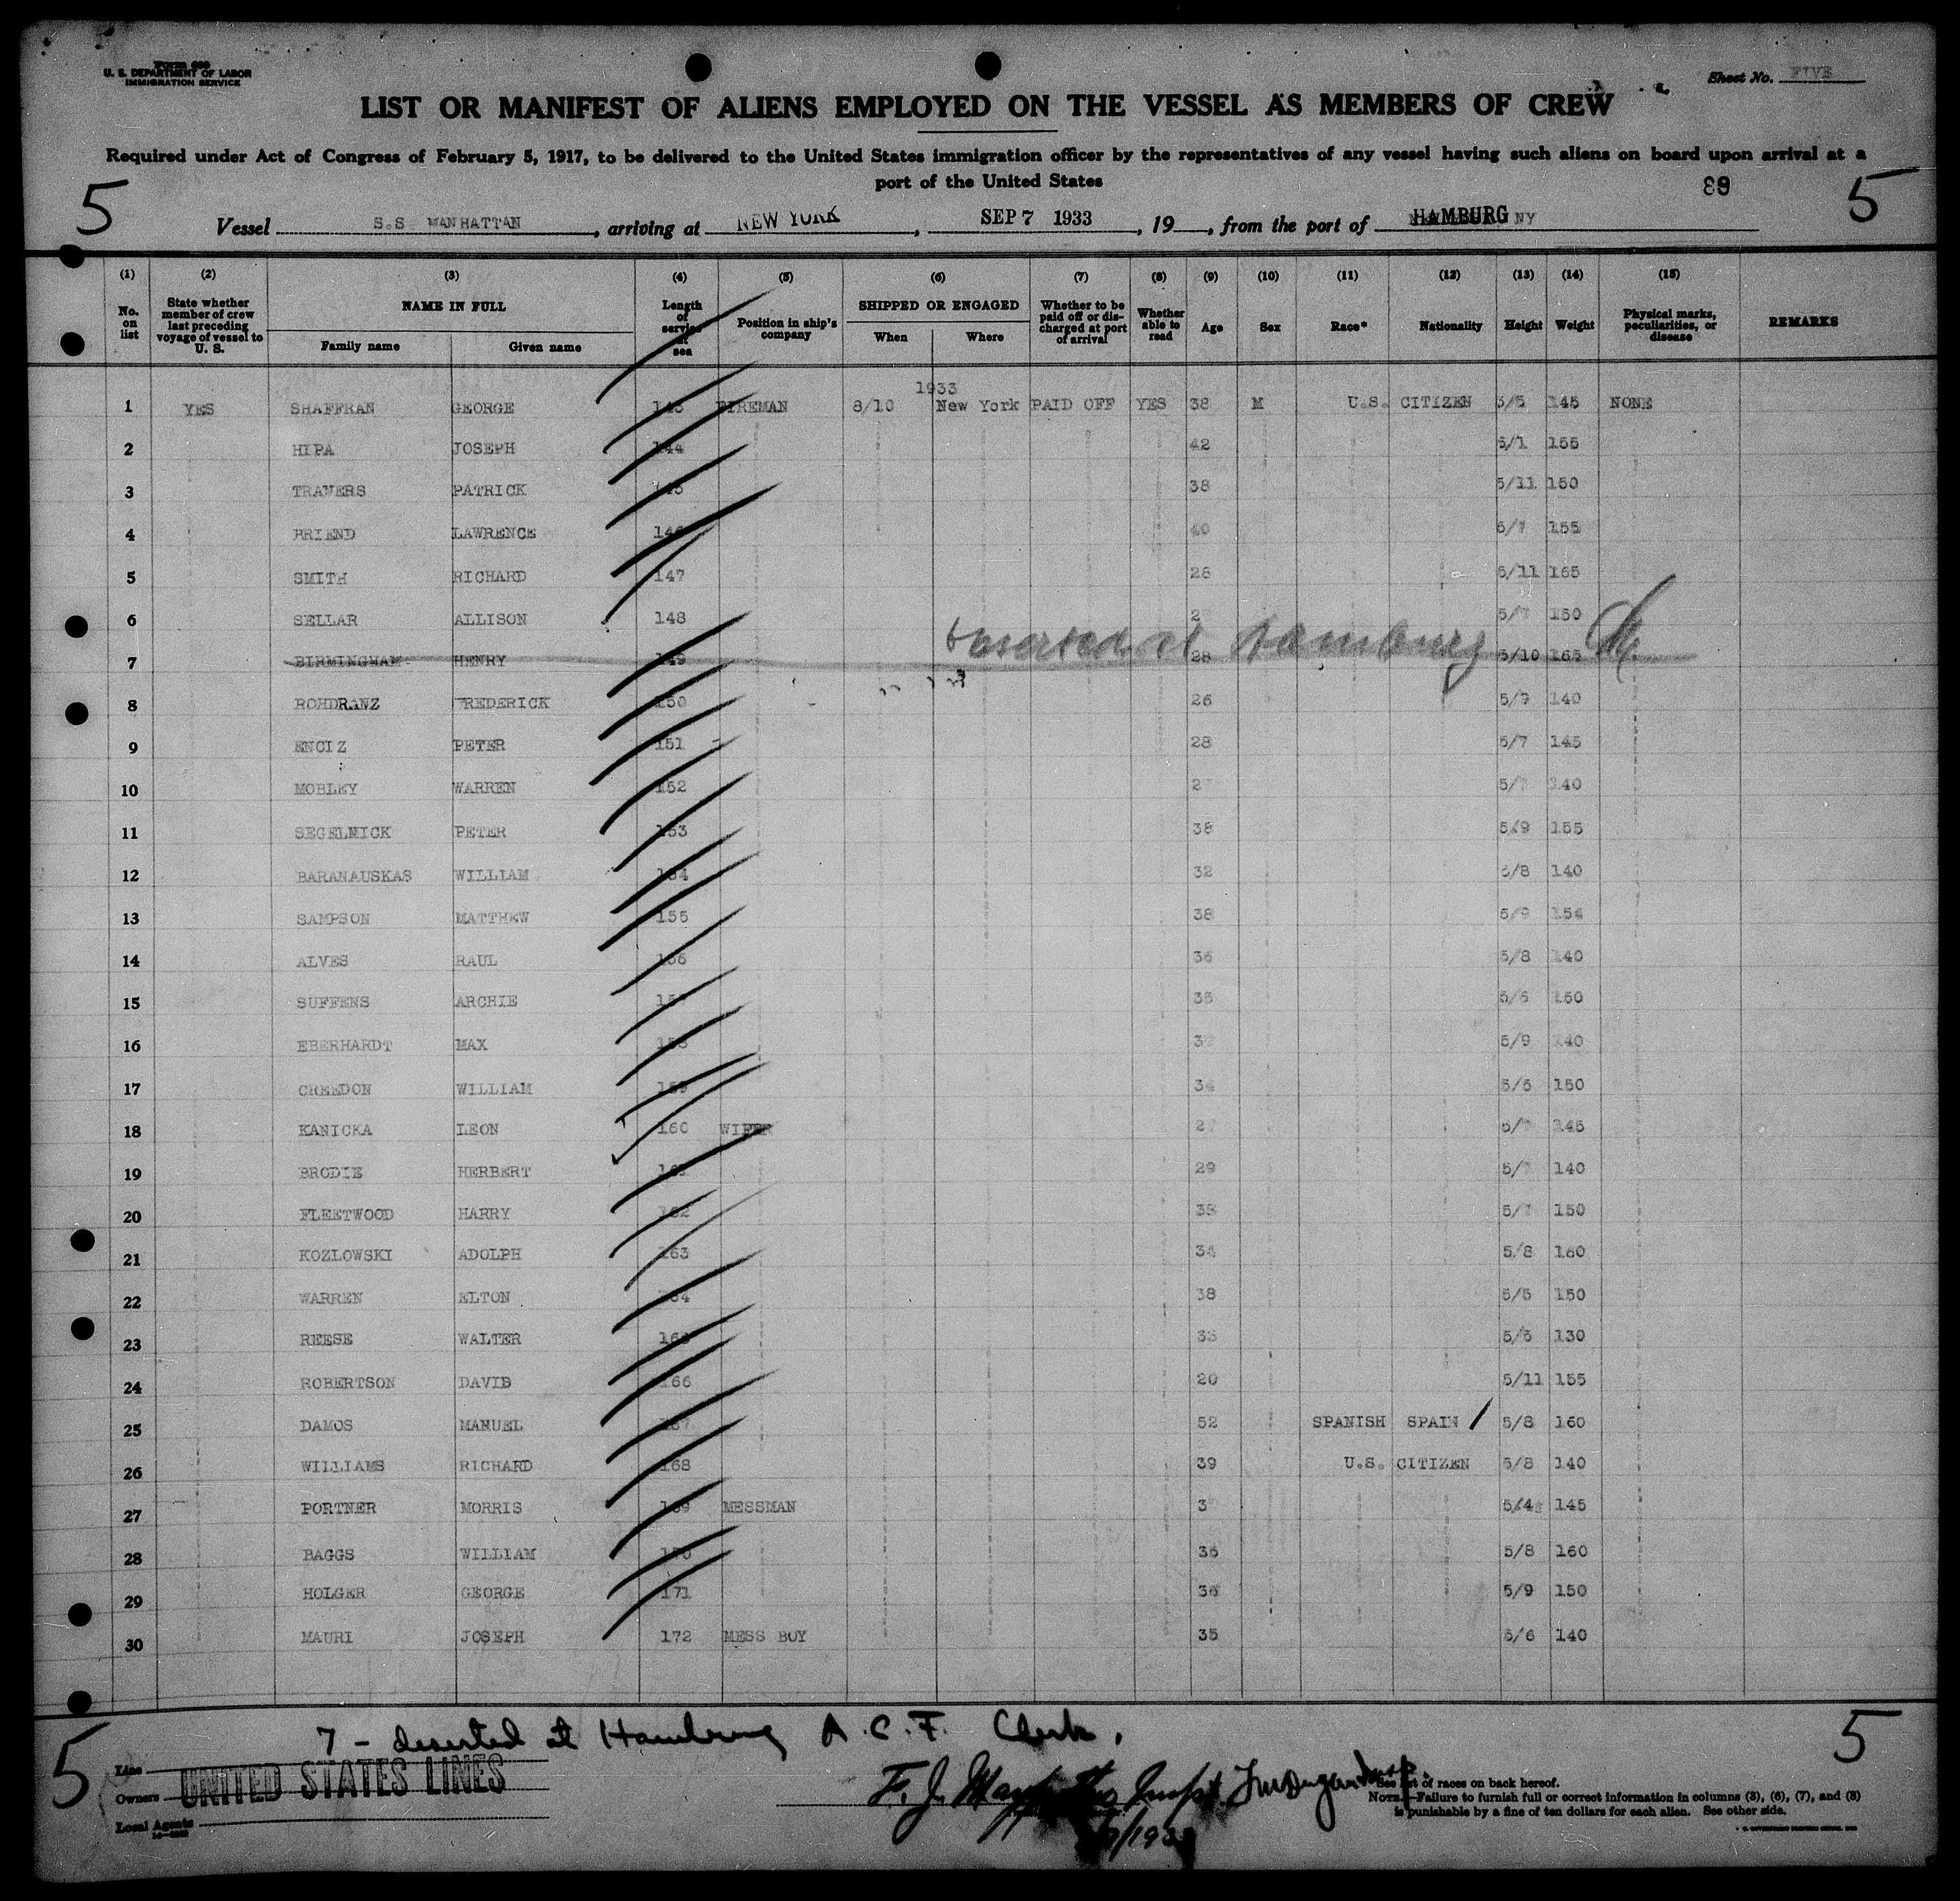 Form 689
U. S. DEPARTMENT OF LABOR
IMMIGRATION SERVICE
Sheet No. FIVE
LIST OR MANIFEST OF ALIENS EMPLOYED ON THE VESSEL AS MEMBERS OF CREW
Required under Act of Congress of February 5, 1917, to be delivered to the United States immigration officer by the representatives of any vessel having such aliens on board upon arrival at a
port of the United States
89
5 5
Vessel S.S MANHATTAN, arriving at NEW YORK, SEP 7 1933, 19, from the port of HAMBURG NY
(1) (2) (3) (4) (5) (6) (7) (8) (9) (10) (11) (12) (13) (14) (15)
No. on list State whether member of crew last preceding voyage of vessel to U. S. NAME IN FULL Family name Given name Length of service at sea Position in ship's company SHIPPED OR ENGAGED When Where Whether to be paid off or discharged at port of arrival Whether able to read Age Sex Race* Nationality Height Weight Physical marks, peculiarities, or disease REMARKS
1933
1 YES SHAFFRAN GEORGE 143 FIREMAN 8/10 New York PAID OFF YES 38 M U.S. CITIZEN 5/5 145 NONE
2 HIPA JOSEPH 144 42 5/1 155
3 TRAVERS PATRICK 145 38 5/11 150
4 PRIEND LAWRENCE 146 40 5/7 155
5 SMITH RICHARD 147 28 5/11 165
6 SELLAR ALLISON 148 2 5/7 150
Deserted at Hamburg
7 BIRMINGHAM HENRY 149 28 5/10 165
8 ROHDRANZ FREDERICK 150 26 5/9 140
9 ENCIZ PETER 151 28 5/7 145
10 MOBLEY WARREN 152 2 5/7 140
11 SEGELNICK PETER 153 38 5/9 155
12 BARANAUSKAS WILLIAM 154 32 5/8 140
13 SAMPSON MATTHEW 155 38 5/9 154
14 ALVES RAUL 156 36 5/8 140
15 SUFFENS ARCHIE 157 35 5/6 150
16 EBERHARDT MAX 158 3 5/9 140
17 CREEDON WILLIAM 159 34 5/5 150
18 KANICKA LEON 160 WIPER 2 5/7 145
19 BRODIE HERBERT 161 29 5/7 140
20 FLEETWOOD HARRY 162 35 5/7 150
21 KOZLOWSKI ADOLPH 163 34 5/8 160
22 WARREN ELTON 164 38 5/5 150
23 REESE WALTER 165 33 5/5 130
24 ROBERTSON DAVID 166 20 5/11 155
25 DAMOS MANUEL 167 52 SPANISH SPAIN 5/8 160
26 WILLIAMS RICHARD 168 39 U.S. CITIZEN 5/8 140
27 PORTNER MORRIS 169 MESSMAN 3 5/4 145
28 BAGGS WILLIAM 170 36 5/8 160
29 HOLGER GEORGE 171 36 5/9 150
30 MAURI JOSEPH 172 MESS BOY 35 5/6 140
7 - deserted at Hamburg A.C.F. Clerk.
5 5
Line
Owners UNITED STATES LINES
Local Agents
F. J.
* See list of races on back hereof.
NOTE.—Failure to furnish full or correct information in columns (3), (6), (7), and (8)
is punishable by a fine of ten dollars for each alien. See other side.